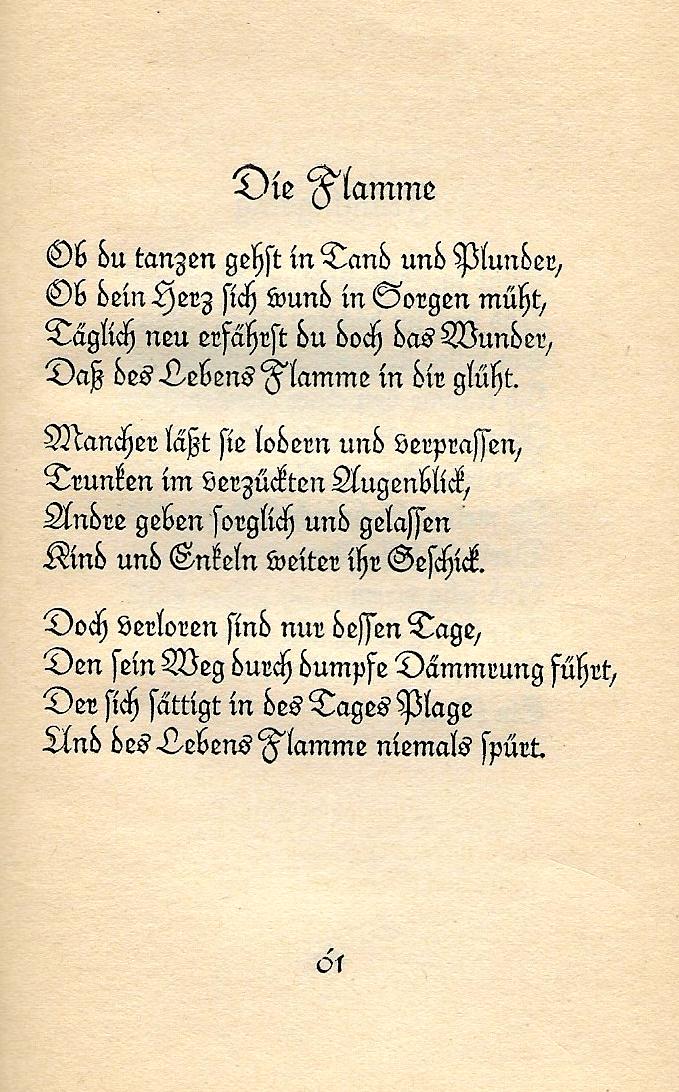 Die Flamme
Ob du tanzen gehst in Tand und Plunder,
Ob dein Herz sich wund in Sorgen müht,
Täglich neu erfährst du doch das Wunder,
Daß des Lebens Flamme in dir glüht.
Mancher läßt sie lodern und verprassen,
Trunken im verzückten Augenblick,
Andre geben sorglich und gelassen
Kind und Enkeln weiter ihr Geschick.
Doch verloren sind nur dessen Tage,
Den sein Weg durch dumpfe Dämmrung führt,
Der sich sättigt in des Tages Plage
Und des Lebens Flamme niemals spürt.
61